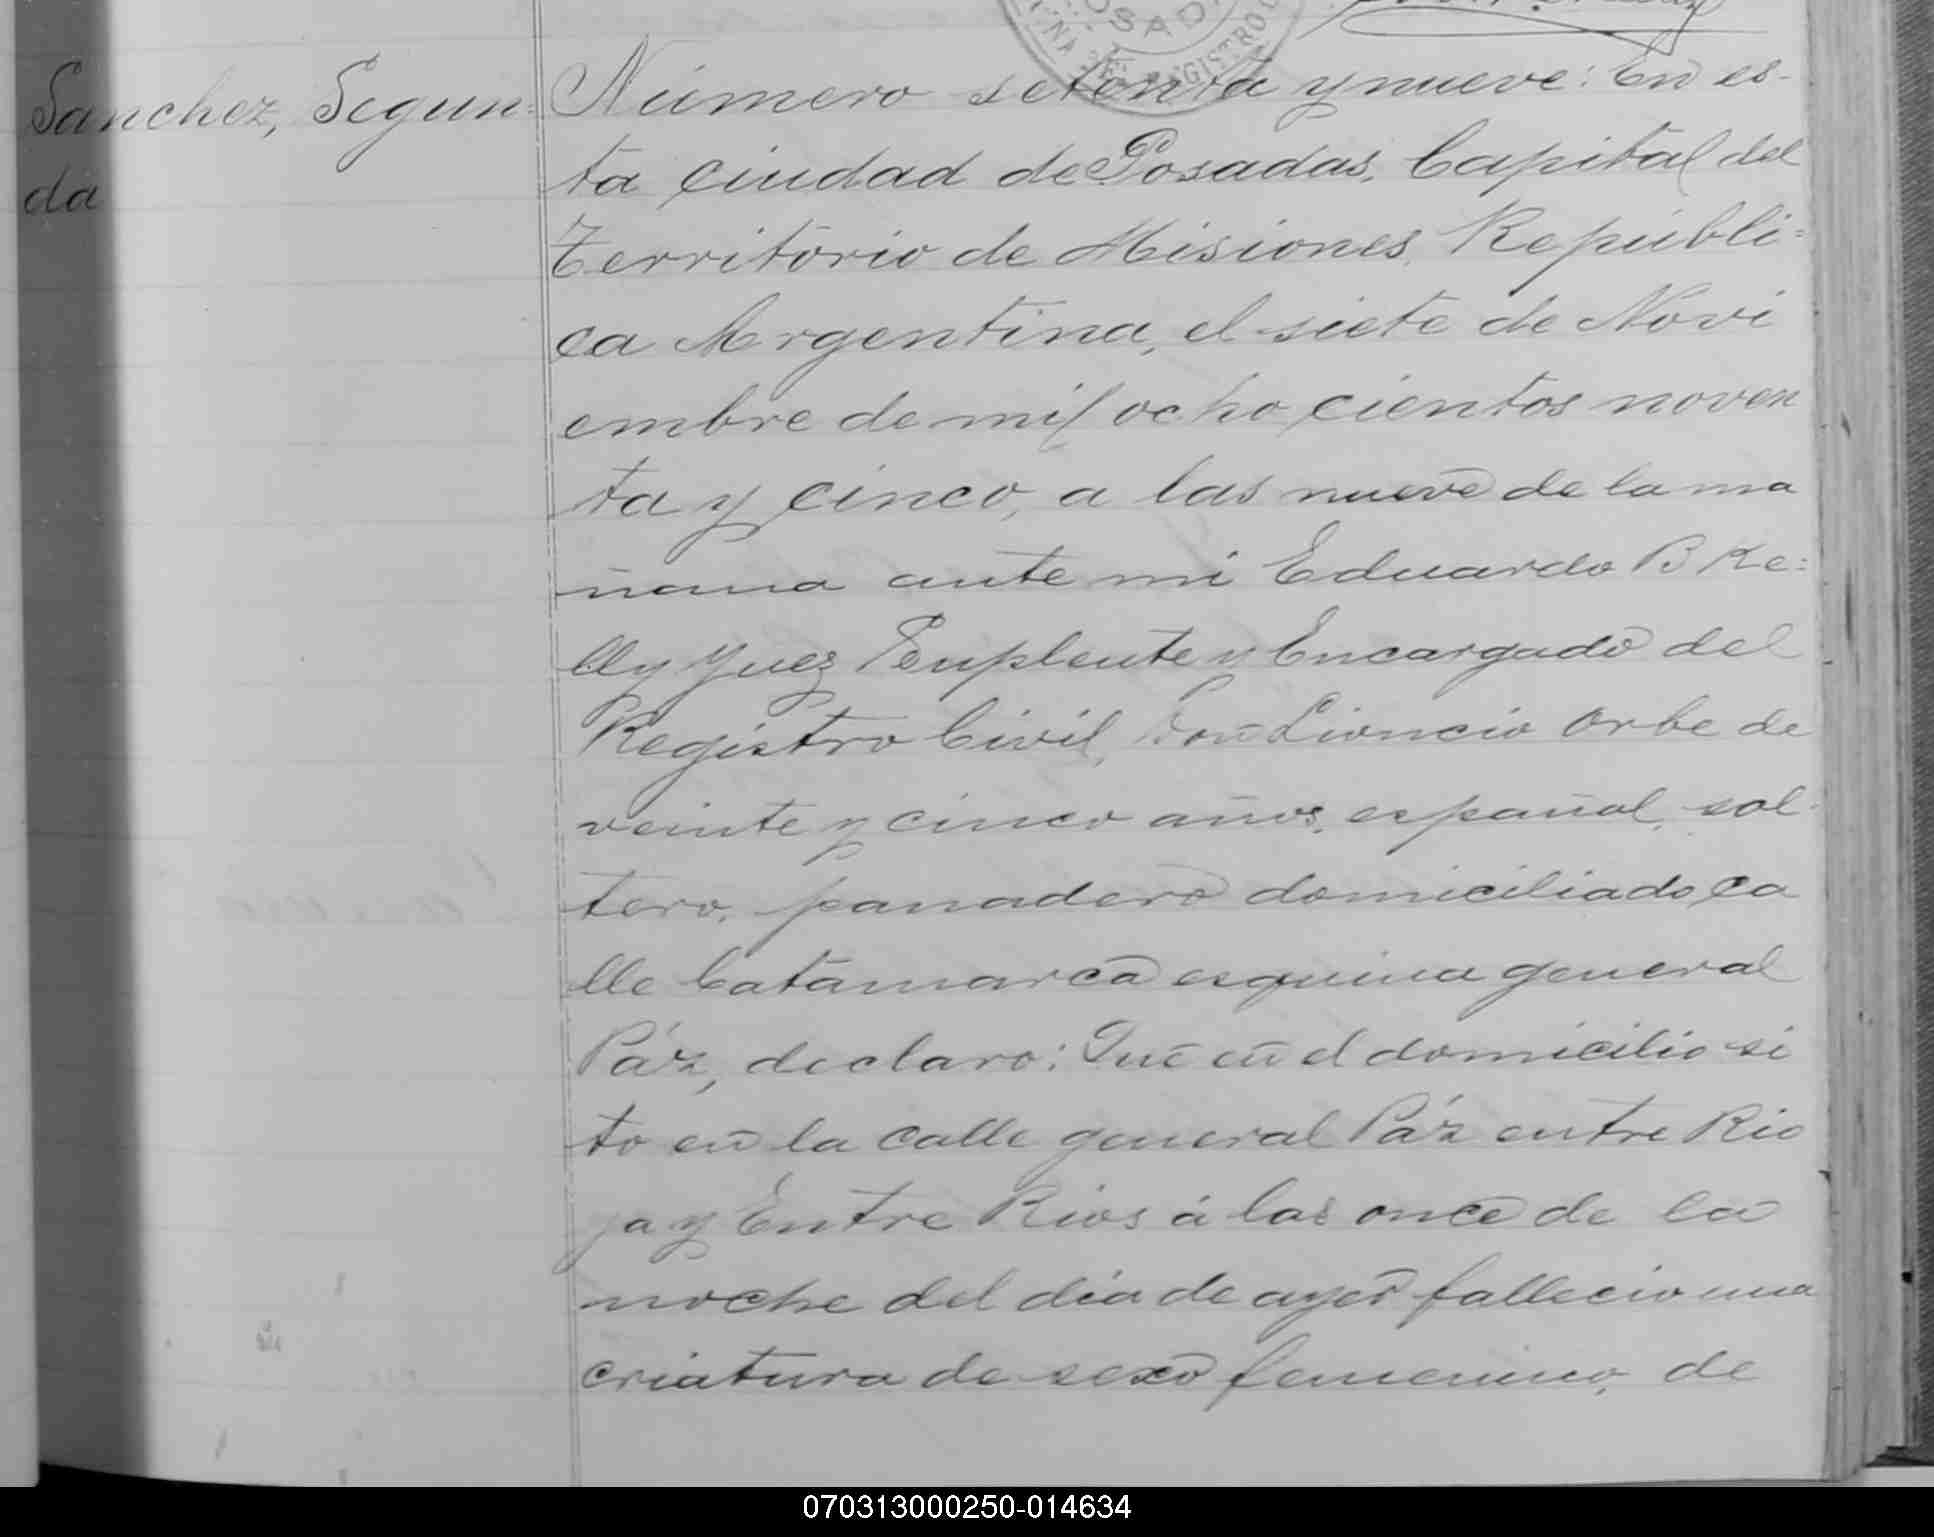 Sanchez, Segun=
da
Número setenta y nueve: En es-
ta ciudad de Posadas, Capital del
Territorio de Misiones, Repúbli=
ca Argentina, el siete de Novi
embre de mil ocho cientos noven
ta y cinco, a las nueve de la ma
ñana ante mi Eduardo B Ke=
lly Juez Suplente y Encargado del
Registro Civil, Don Lioncio Orbe de
veinte y cinco años, español, sol-
tero, panadero domiciliado ca
lle Catamarca esquina general
Páz, declaro: Que en el domicilio si
to en la calle general Páz entre Rio
ja y Entre Rios á las once de la
noche del dia de ayer fallecio una
criatura de sexo femenino, de
070313000250-014634